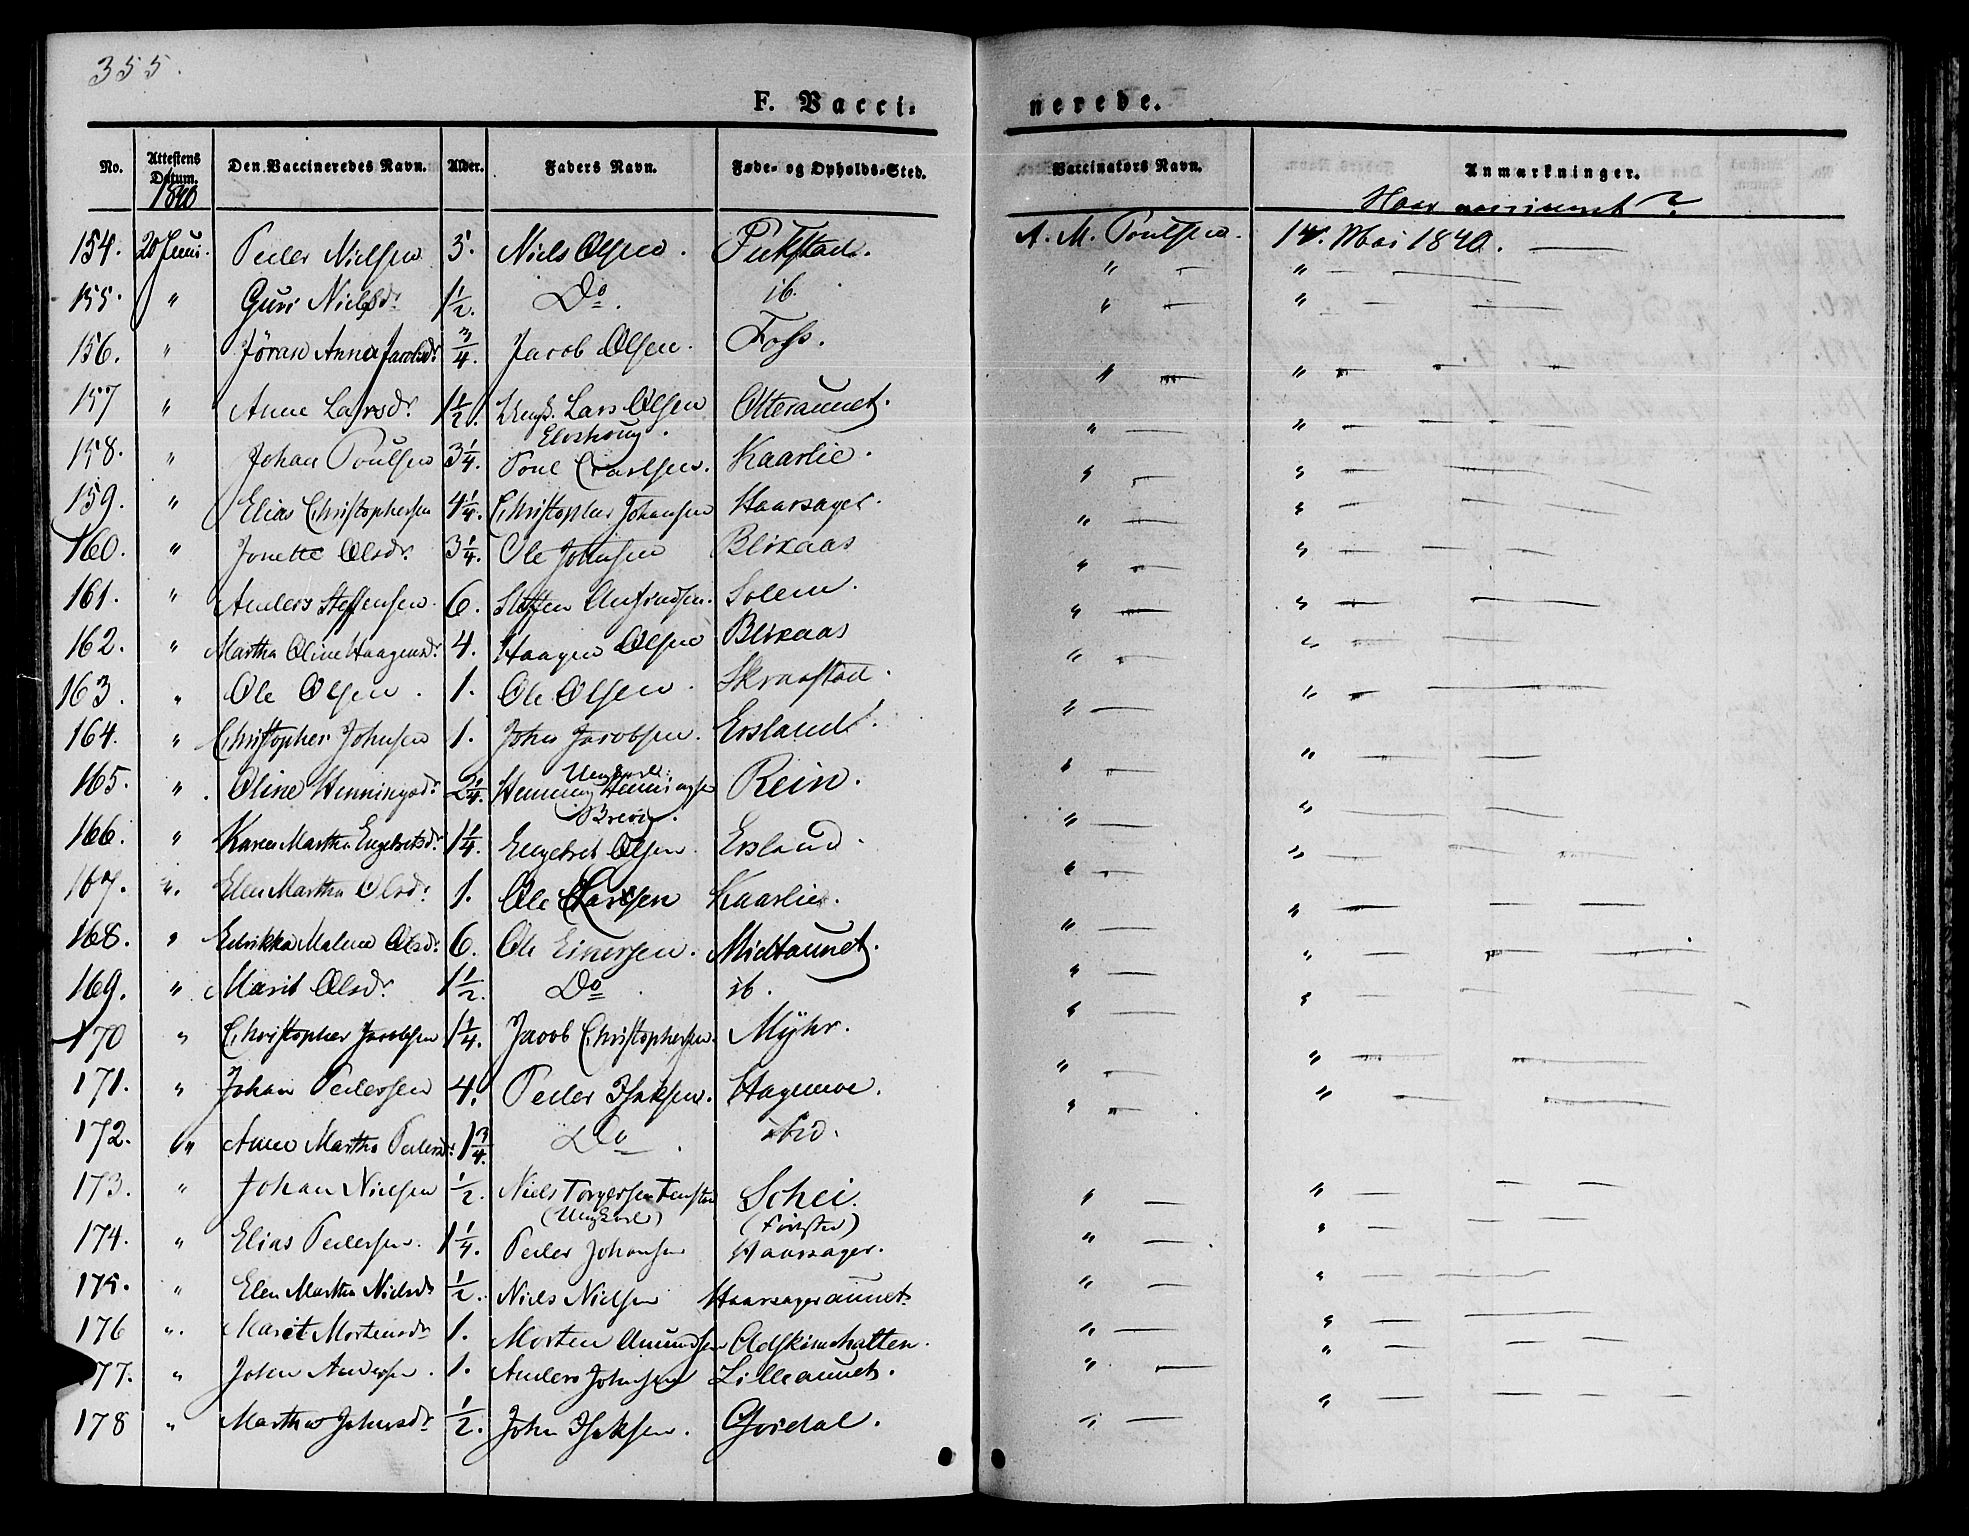 355.
F. Vacci- nerede.
No. Attestens Datum. Den Vaccineredes Navn. Alder. Faders Navn. Føde- og Opholds-Sted. Vaccinators Navn. Anmærkninger.
1840 Naar vaccineret?
154. 20 Juni. Peder Nielsen 5. Niels Olsen. A. M. Poulsen. 14. Mai 1840. —
155. " Guri Nielsdr. 1½. Do. ib. " — " — —
156. " Jöran Anna Jacobsdr. ¾. Jacob Olsen. Foss. " — " — —
157 " Anne Larsdr. 1½. Ungk. Lars Olsen Otteraunet. " — " — — —
Elvshoug.
158. " Johan Poulsen 3¼. Poul Carlsen. Kaarlie. " — " — — —
159. " Elias Christophersen 4¼. Christopher Johansen Haarsager. " — " — —
160. " Jonette Olsdr. 3¼. Ole Johnsen Blixaas " — " — —
161. " Anders Steffensen. 6. Steffen Solem. " — " — — —
162. " Martha Oline Haagensdr. 4. Haagen Olsen Blixaas " — " — — —
163. " Ole Olsen. 1. Ole Olsen. Skraastad. " — " — —
164. " Christopher Johnsen 1. John Jacobsen. Ersland. " — " — —
Ungkarl:
165. " Oline Henningsdr. 2¼. Henning Henningsen Rein. " — " — — —
166. " Karen Martha Engebretsdr. 1¼. Engebret Olsen Ersland. " — " — — —
167. " Elen Martha Olsdr. 1. Ole Larsen Kaarlie. " — " — — —
168. " Malene Olsdr. 6. Ole Einersen. Midtaunet. " — " — — —
169. " Marit Olsdr. 1½. Do ib. " — " — — —
170 " Christopher Jacobsen 1¼. Jacob Christophersen. Myhr. " — " — —
171. " Johan Pedersen 4. Peder Isaksen. Hagemoe. " — " — —
172. " Anne Martha Pedersdr. 1¾. Do. ibid. " — " — —
173. " Johan Nielsen ½. Niels Torgersen Schei. " — " — — —
(Ungkarl)
174. " Elias Pedersen. 1¼. Peder Johansen Haarsager. " — " — —
175. " Elen Martha Nielsdr ½. Niels Nielsen Haarsageraunet. " — " — —
176 " Marit Mortensdr. 1. Morten Amundsen " — " — —
177. " John Andersen. 1. Anders Johnsen Lilleaunet. " — " — —
178 " Martha Johnsdr. ½. John Isaksen. Gjerdal. " — " — — —